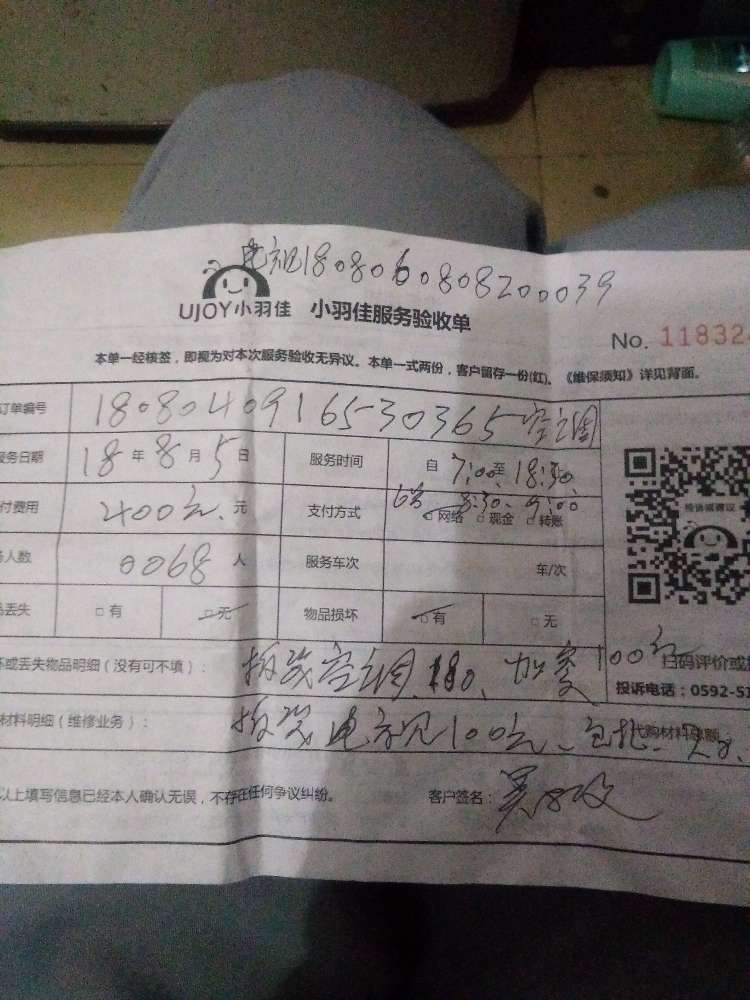 电视180806080820039
UJOY小羽佳 小羽佳服务验收单
No. 11832
本单一经核签，即视为对本次服务验收无异议。本单一式两份，客户留存一份(红)。《维保须知》详见背面。
订单编号 1808040916530365 空调
服务日期 18年8月5日 服务时间 自7:00至18:30
8:30 9:00
付费用 400元.元 支付方式 □网络 □现金 □转账
人数 0068人 服务车次 车/次
丢失 □有 □无 物品损坏 □有 □无
坏或丢失物品明细（没有可不填）： 拆装空调 180、加 100元
扫码评价或
投诉电话：0592-5
材料明细（维修业务）： 拆装电视100元、
代购材料总额
以上填写信息已经本人确认无误，不存在任何争议纠纷。 客户签名：